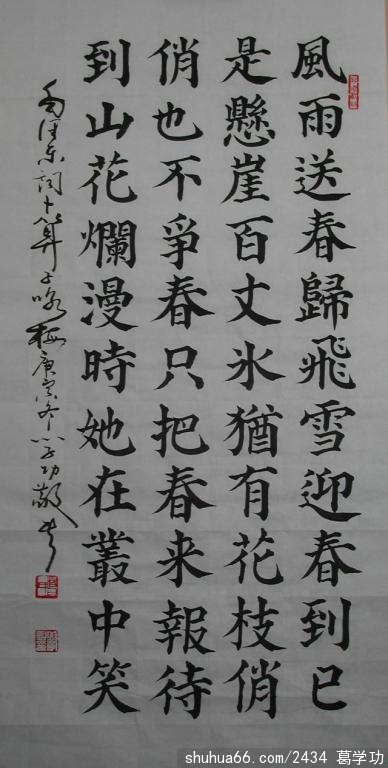 風雨送春歸飛雪迎春到已
是懸崖百丈氷猶有花枝俏
俏也不爭春只把春来報待
到山花爛漫時她在叢中笑
毛泽东词卜算子咏梅庚寅冬
shuhua66.com/2434 葛学功